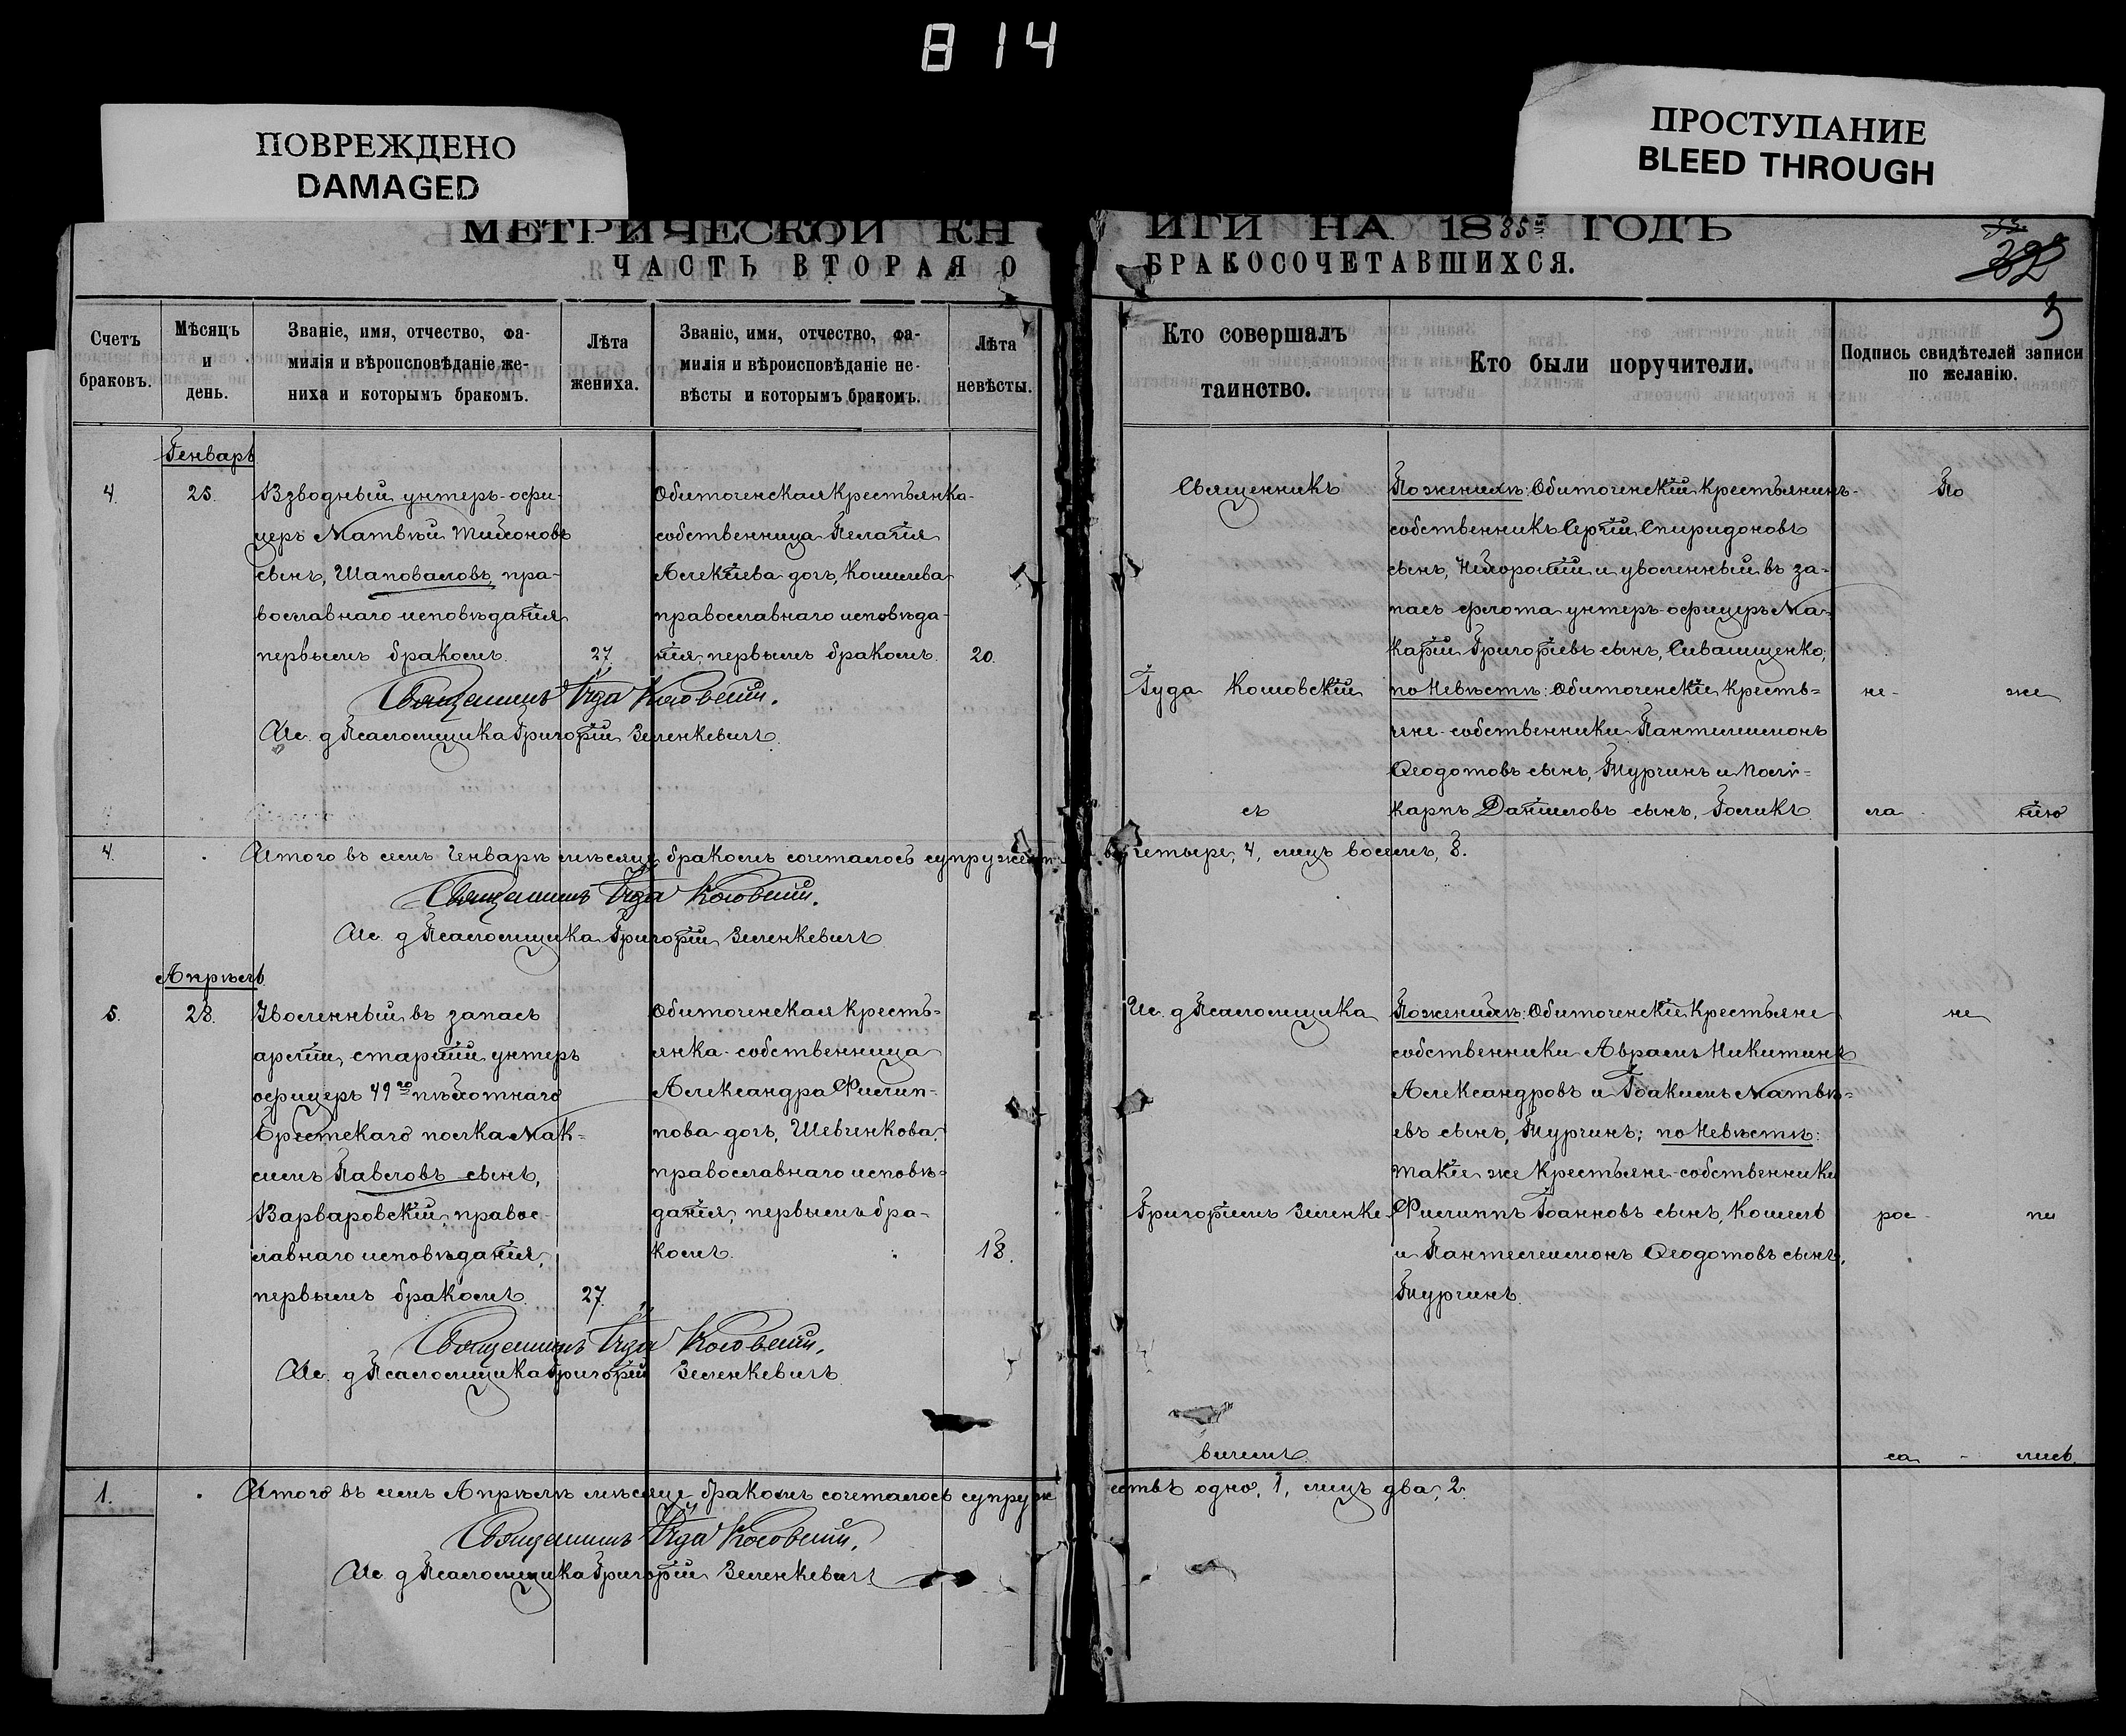 814
ПОВРЕЖДЕНО
DAMAGED
ПРОСТУПАНИЕ
BLEED THROUGH
МЕТРИЧЕСКОЙ КНИГИ НА 1885й ГОДЪ
ЧАСТЬ ВТОРАЯ О БРАКОСОЧЕТАВШИХСЯ.
32
3
Счетъ браковъ.
Мѣсяцъ и день.
Званіе, имя, отчество, фа-
милія и вѣроисповѣданіе же-
ниха и которымъ бракомъ.
Лѣта
жениха.
Званіе, имя, отчество, фа-
милія и вѣроисповѣданіе не-
вѣсты и которымъ бракомъ.
Лѣта
невѣсты.
Кто совершалъ
таинство.
Кто были поручители.
Подпись свидѣтелей записи
по желанію.
Генварь
4.
25.
Взводный унтеръ-офи-
церъ Матвѣй Тихоновъ
сынъ, Шаповаловъ, пра-
вославнаго исповѣданія
первымъ бракомъ.
27.
Обиточенская крестьянка-
собственница Пелагія
Алексіева дочъ, Кошелева
православнаго исповѣда-
нія, первымъ бракомъ.
20.
Священникъ
Іуда Косовскій
съ
По женихѣ: Обиточенскій крестьянинъ-
собственникъ Сергій Спиридоновъ
сынъ, и уволенный въ за-
пасъ флота унтеръ-офицеръ Ма-
карій Григоріевъ сынъ, Сиващенко;
по Невѣстѣ: Обиточенскіе кресть-
яне-собственники Пантелимонъ
Ѳеодотовъ сынъ, Турчинъ и Поли-
карпъ Даніиловъ сынъ, Голикъ.
По
не- же
ла- нію
Священникъ Іуда Косовскій.
Ис. д Псаломщика Григорій Зеленкевичъ.
4.
Итого въ семъ Генварѣ мѣсяцѣ бракомъ сочеталось супружествъ четыре, 4, лицъ восемь, 8.
Священникъ Іуда Косовскій.
Ис. д Псаломщика Григорій Зеленкевичъ.
Апрѣль
5.
28.
Уволенный въ запасъ
арміи, старшій унтеръ
офицеръ 49го пѣхотнаго
Брестскаго полка Мак-
симъ Павловъ сынъ,
Варваровскій, правос-
лавнаго исповѣданія,
первымъ бракомъ.
27.
Обиточенская кресть-
янка-собственница
Александра Филип-
пова дочъ, Шевченкова,
православнаго исповѣ-
данія, первымъ бра-
комъ.
18.
Ис. д Псаломщика
Григоріемъ Зеленке-
вичемъ.
По женихѣ: Обиточенскіе крестьяне
собственники Аврамъ Никитинъ
Александровъ и Іоакимъ Матвѣ-
евъ сынъ, Турчинъ; по Невѣстѣ:
такіе же крестьяне-собственники
Филиппъ Іоанновъ сынъ, Кошель
и Пантелеимонъ Ѳеодотовъ сынъ,
Турчинъ.
не
рос- пи
са- лись.
Священникъ Іуда Косовскій.
Ис. д Псаломщика Григорій Зеленкевичъ.
1.
Итого въ семъ Апрѣлѣ мѣсяцѣ бракомъ сочеталось супружествъ одно, 1, лицъ два, 2.
Священникъ Іуда Косовскій.
Ис. д Псаломщика Григорій Зеленкевичъ